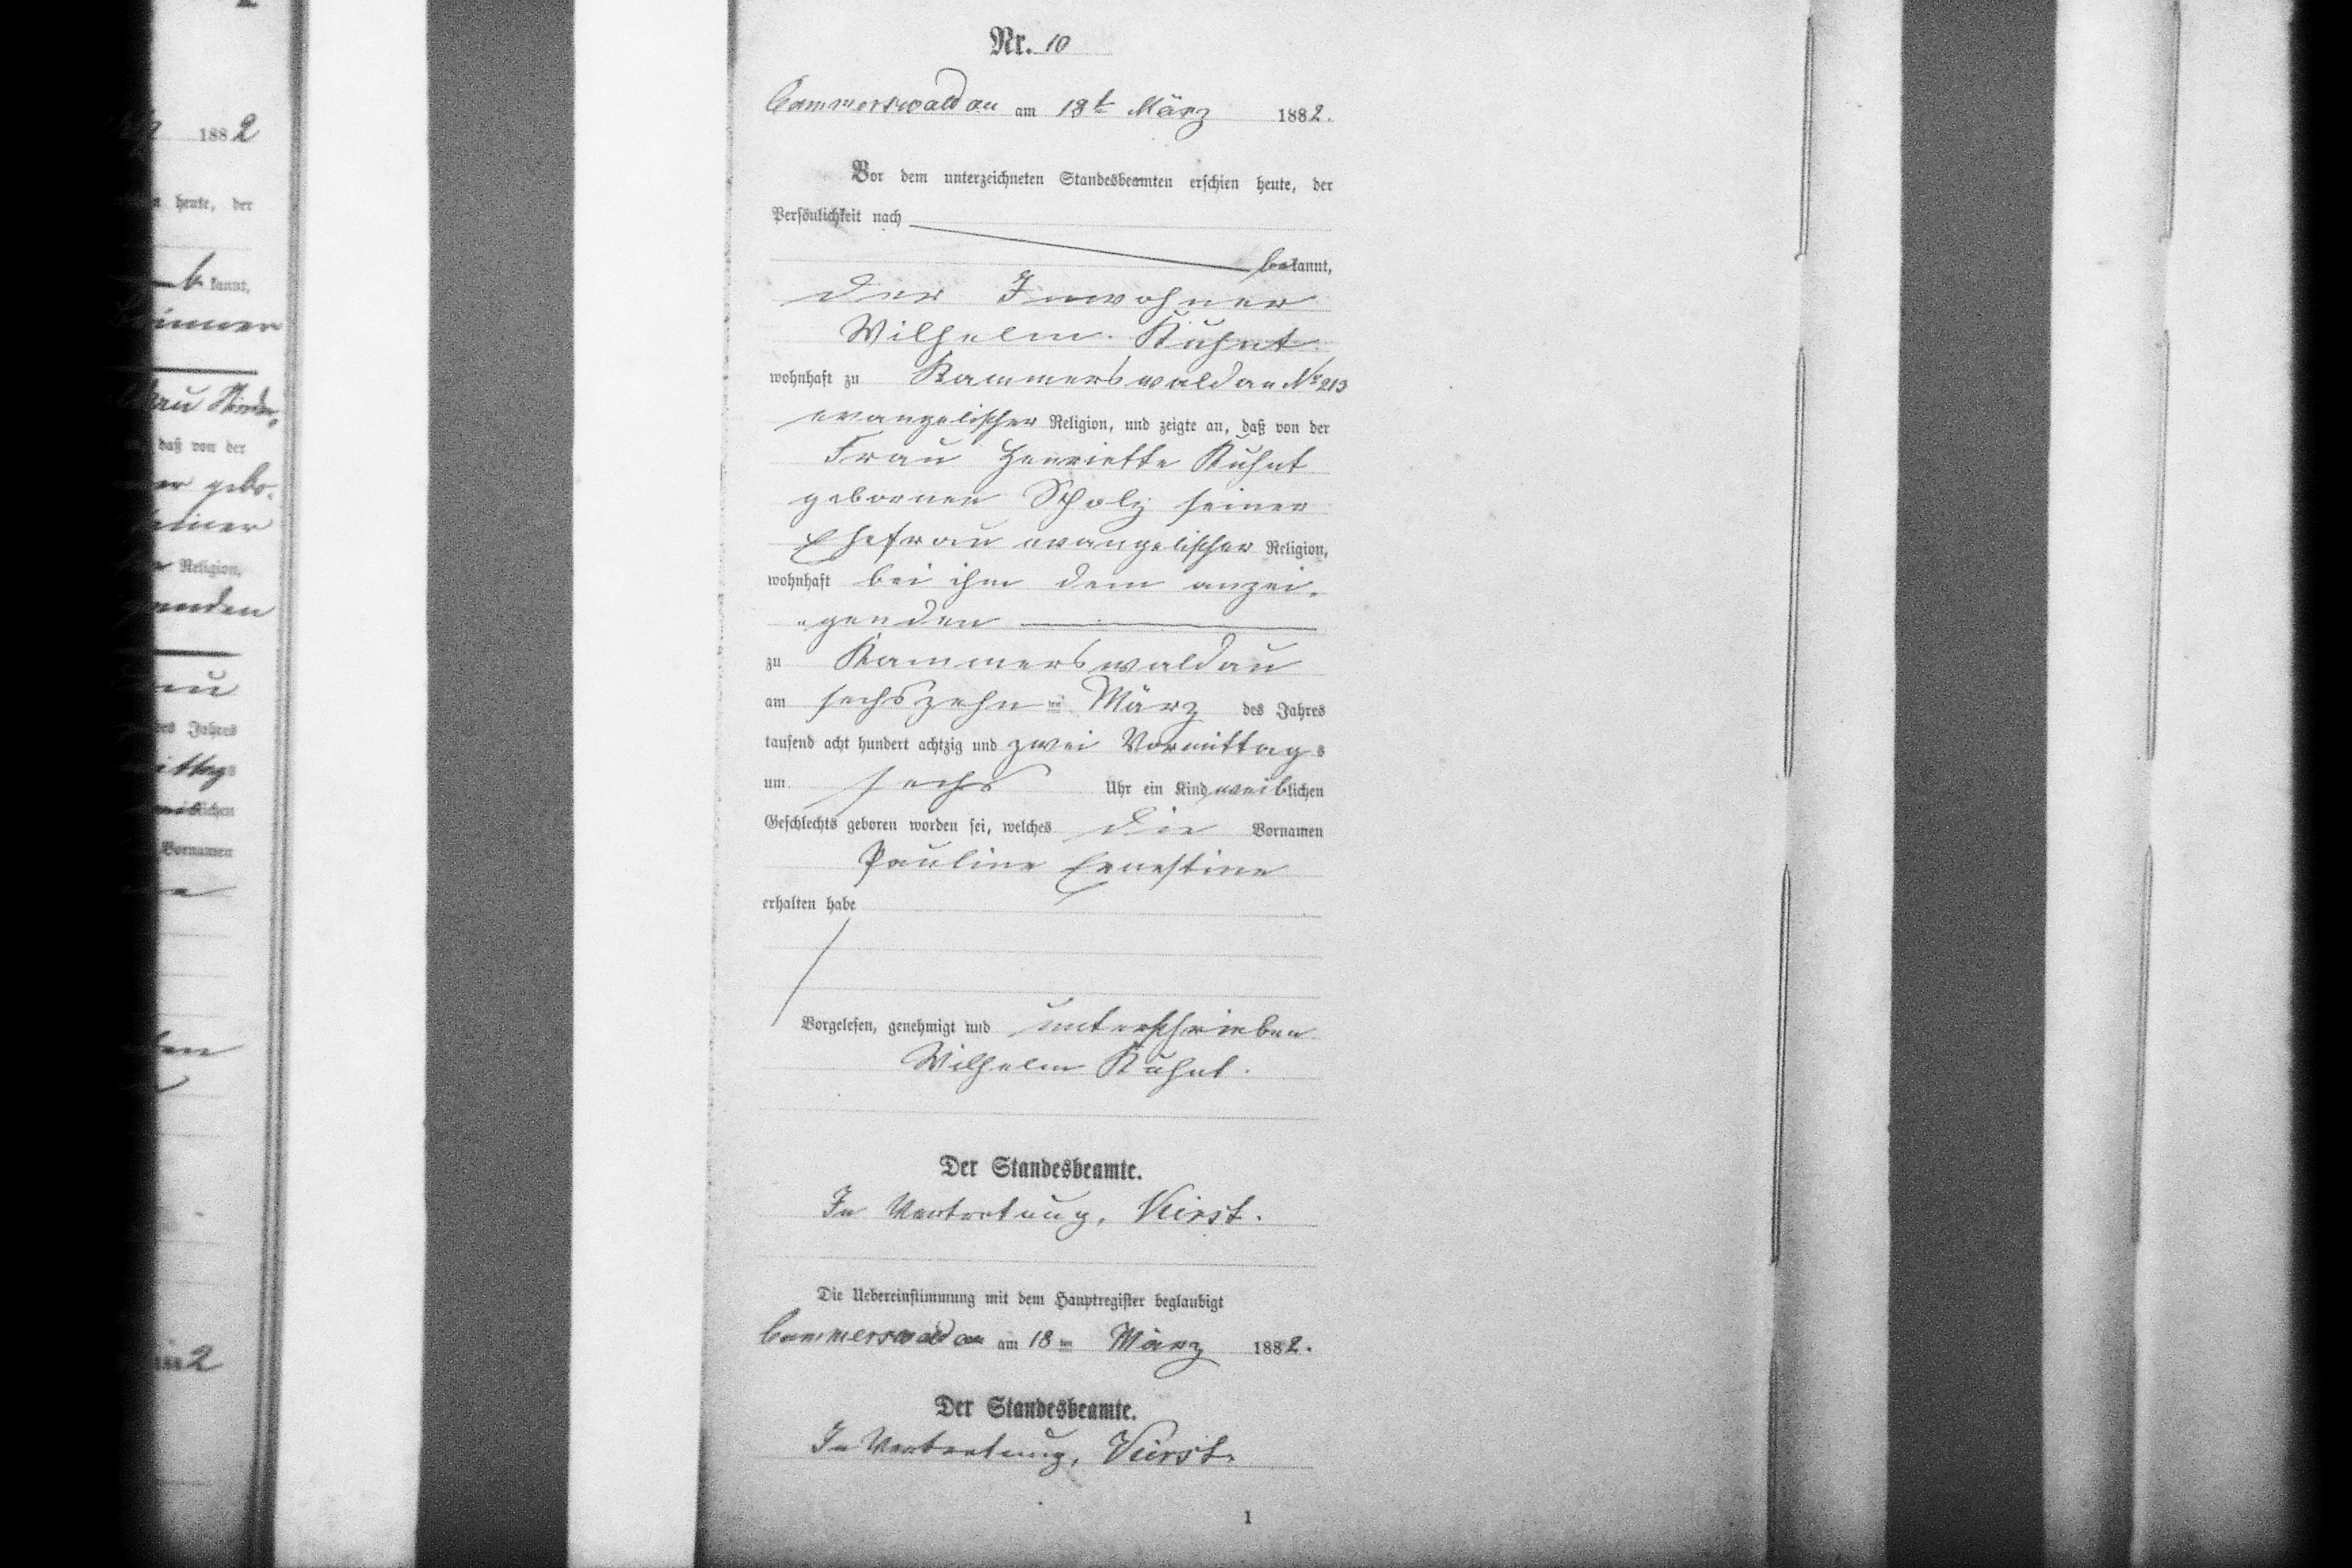 Nr. 10
Cammerswaldau am 18t März 1882.
Vor dem unterzeichneten Standesbeamten erschien heute, der
Persönlichkeit nach
bekannt,
der Inwohner
Wilhelm Kuhnt
wohnhaft zu Kammerswaldau No 213
evangelischer Religion, und zeigte an, daß von der
Frau Henriette Kuhnt
geborner Scholz seiner
Ehefrau evangelischer Religion,
wohnhaft bei ihm dem anzei-
genden
zu Kammerswaldau
am sechszehnten März des Jahres
tausend acht hundert achtzig und zwei Vormittags
um sechs Uhr ein Kind weiblichen
Geschlechts geboren worden sei, welches die Vornamen
Pauline Ernestine
erhalten habe
Vorgelesen, genehmigt und unterschrieben
Wilhelm Kuhnt.
Der Standesbeamte.
In Vertretung,
Die Uebereinstimmung mit dem Hauptregister beglaubigt
Cammerswaldau am 18ten März 1882.
Der Standesbeamte.
In Vertretung,
1
1882
heute, der
kannt,
daß von der
Religion,
des Jahres
lichen
Vornamen